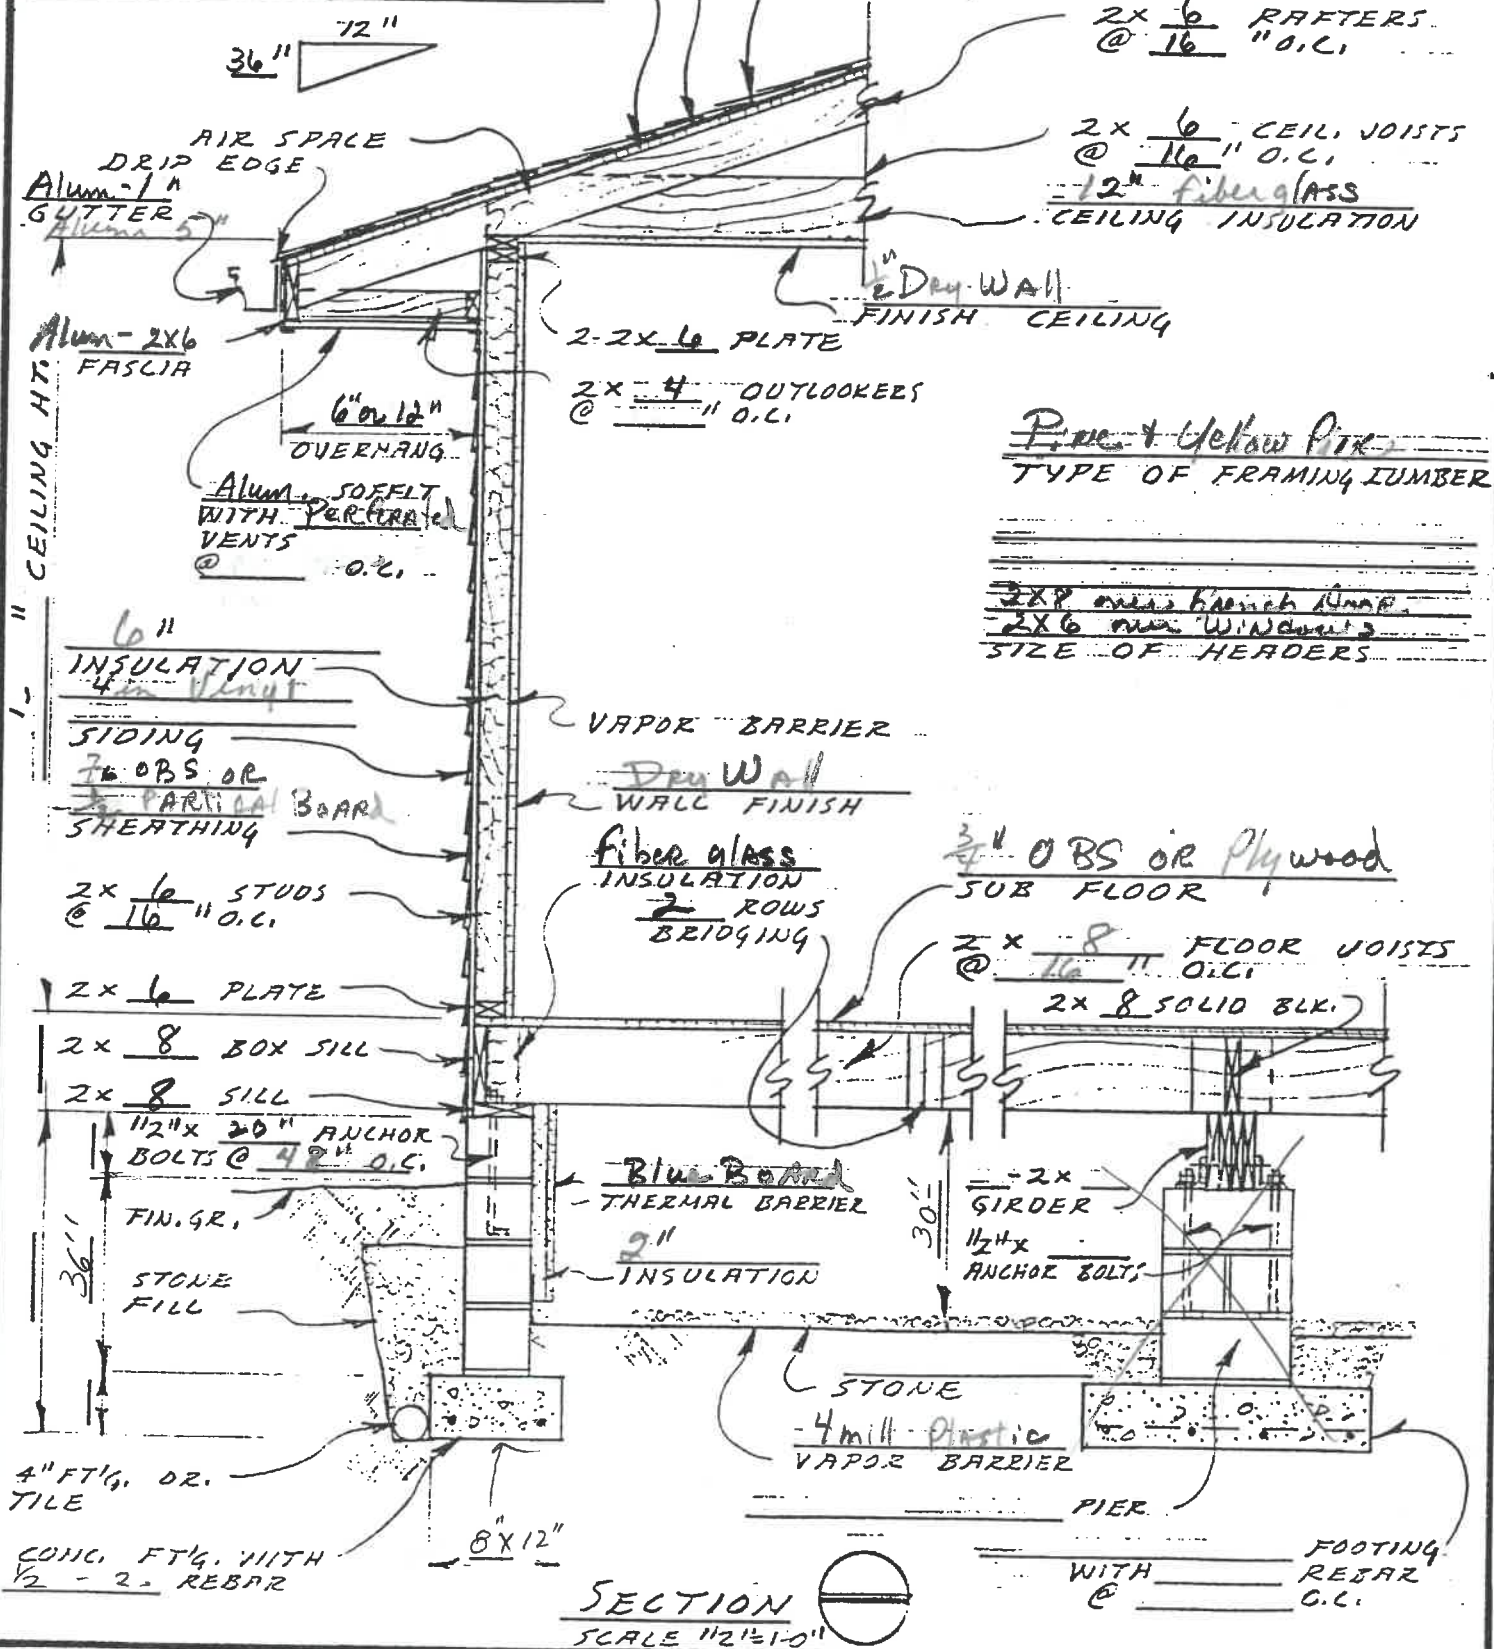 12"
36"
2x 6 RAFTERS
@ 16 " O.C.
AIR SPACE
DRIP EDGE
Alum-1"
GUTTER
Alum 5"
5
2x 6 CEIL. JOISTS
@ 16 " O.C.
12" fiberglass
CEILING INSULATION
1/2" Dry Wall
FINISH CEILING
Alum - 2x6
FASCIA
2-2x 6 PLATE
2x 4 OUTLOOKERS
@ " O.C.
6" or 12"
OVERHANG
Alum. SOFFIT
WITH Perforated
VENTS
@ O.C.
1- " CEILING HT.
Pine & Yellow Pine
TYPE OF FRAMING LUMBER
2x8 over French Door
2x6 over Windows
SIZE OF HEADERS
6"
INSULATION
4in Vinyl
SIDING
7/16 OBS OR
1/2 PARTICAL BOARD
SHEATHING
VAPOR BARRIER
Dry Wall
WALL FINISH
2x 6 STUDS
@ 16 " O.C.
fiber glass
INSULATION
2 ROWS
BRIDGING
3/4" OBS OR Plywood
SUB FLOOR
2x 8 FLOOR JOISTS
@ 16 " O.C.
2x 8 SOLID BLK.
2x 6 PLATE
2x 8 BOX SILL
2x 8 SILL
1/2"x 20" ANCHOR
BOLTS @ 48" O.C.
FIN. GR.
36"
STONE
FILL
Blue Board
THERMAL BARRIER
2"
INSULATION
30"
-2x
GIRDER
1/2"x
ANCHOR BOLTS
STONE
4mill Plastic
VAPOR BARRIER
PIER
4" FT'G. DR.
TILE
CONC. FT'G. WITH
1/2 - 2. REBAR
8"x12"
FOOTING
WITH REBAR
@ O.C.
SECTION
SCALE 1/2"=1-0"